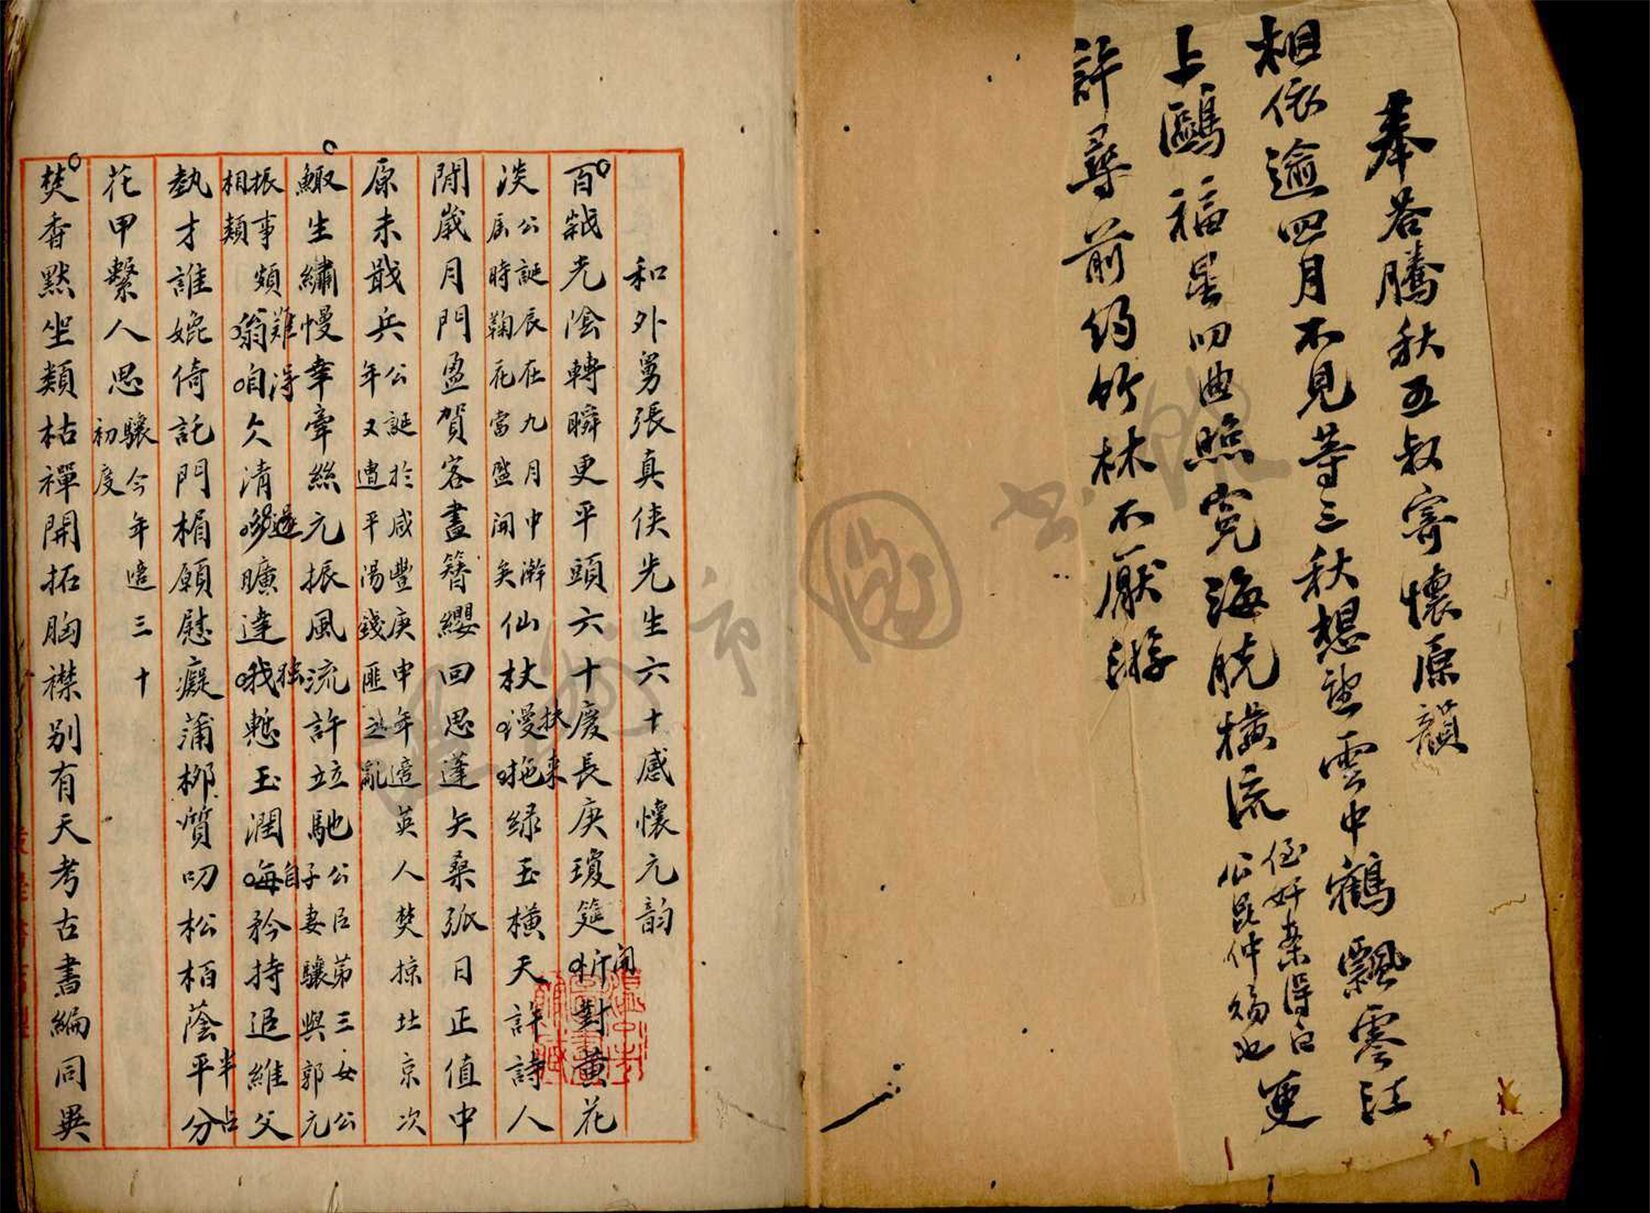 奉答騰秋五叔寄懷原韻
相依逾四月不見等三秋想望雲中鶴飄零江
上鷗福星叨曲照
侄奸案得白
公昆仲賜也
究海脱橫流更
許尋前約竹林不厭游
和外舅張真俠先生六十感懷元韵
百龄光陰轉瞬更平頭六十慶長庚瓊筵開對黃花
淡
公誕辰在九月中澣
届時鞠花當盛開矣
仙杖扶來綠玉橫天許詩人
閒歲月門盈賀客盡簪纓回思蓬矢桑弧日正值中
原未戢兵
公誕於咸豐庚申年適英人焚掠北京次
年又遭平陽錢匪之亂
鯫生繡幔幸牽絲元振風流許立馳
公臣第三女公
子妻驤與郭元
振事頗
相類
難得翁咱欠清過曠達獨慙玉潤自矜持追維父
執才誰媲倚託門楣願慰癡蒲柳質叨松柏蔭平分半占
花甲繫人思
驤今年適三十
初度
焚香默坐類枯禪開拓胸襟別有天考古書編同異